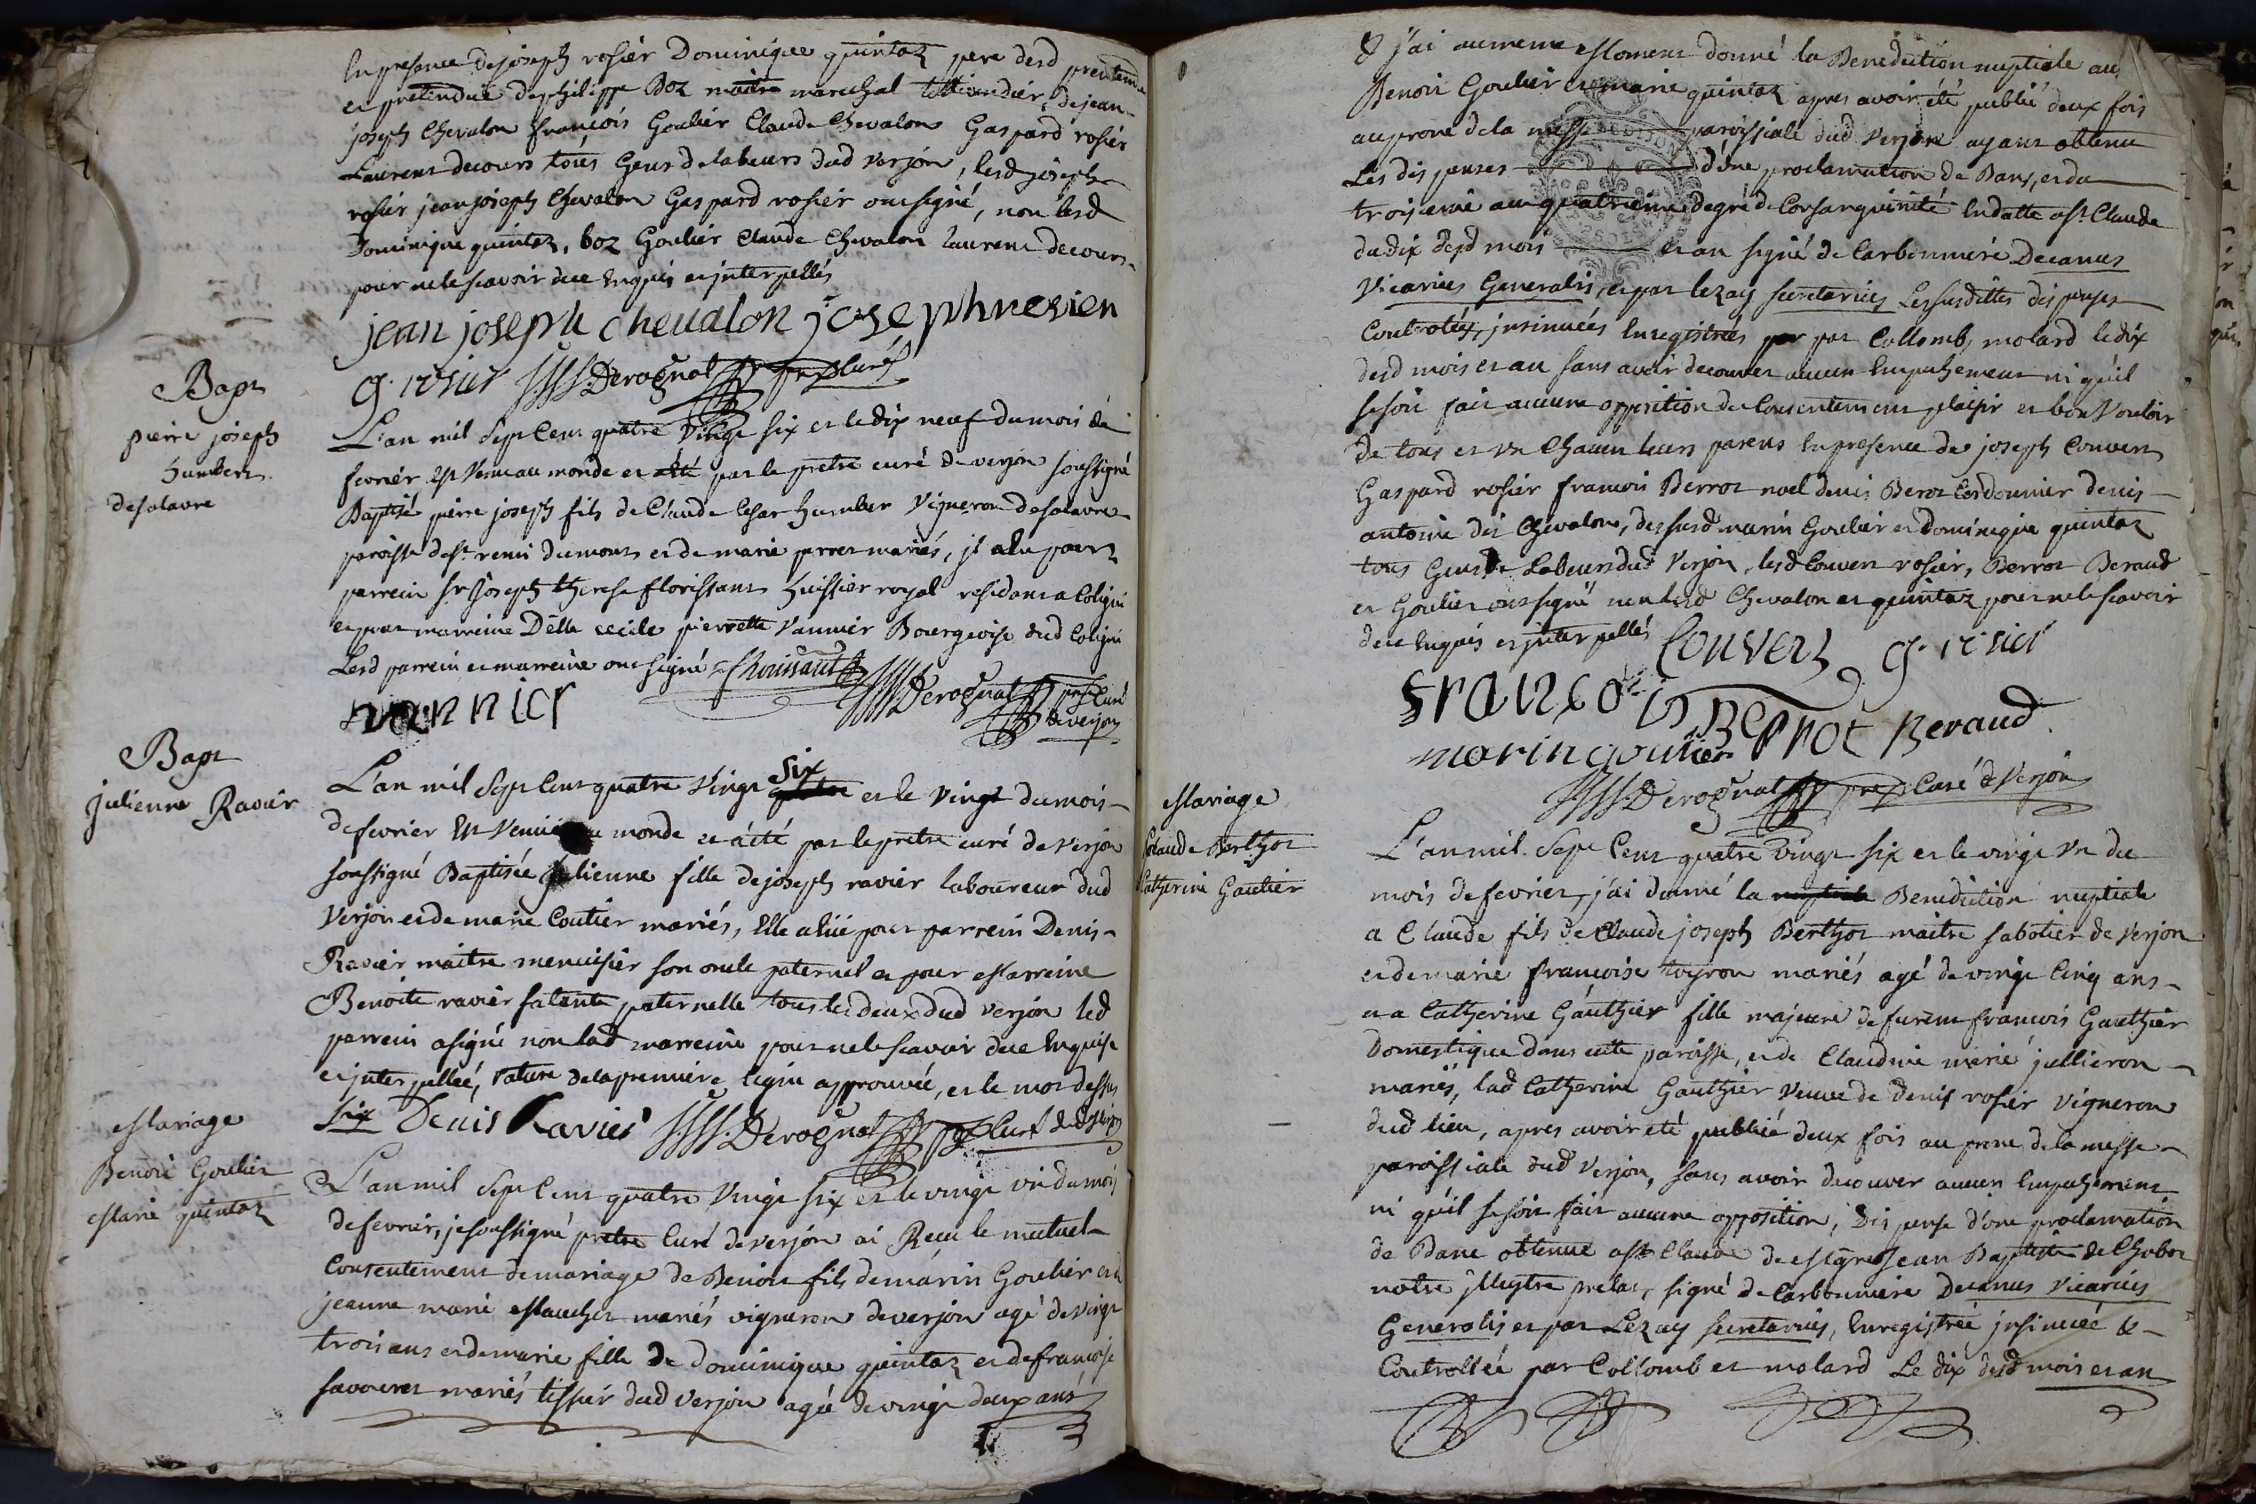 En presence de joseph rosier Dominique quintaz pere desd pretendu
et pretendue de philippe Boz maitre marechal de jean
joseph Chevalon françois Goulier Claude Chevalon Gaspard rosier
Laurent decours tous Gens de labeurs dud verjon, lesd joseph
rosier jean joseph Chevalon Gaspard rosier ont signé, non lesd
Dominique quintaz, boz Goulier Claude Chevalon laurent decours
pour ne le scavoir de ce enquis et interpellés
jean joseph chevalon joseph
g. rosier Derognat ptre Curé
Bapt
pierre joseph
humbert
desalavre
L'an mil Sept Cent quatre vingt six et le dix neuf du mois de
fevrier est venu au monde et été par le pretre curé de verjon soussigné
Baptisé pierre joseph fils de Claude Cesar humber vigneron desalavre
paroisse de st remi dumont et de marie perret mariés, il a eu pour
parrein sr joseph therese florissant huissier royal residant a Coligni
et pour marreine Delle cecile pierrette vannier Bourgeoise dud Coligni
Lesd parrein et marreine ont signé
vannier Derognat ptre Curé
de verjon
Bapt
Julienne Ravier
L'an mil Sept Cent quatre vingt six et le vingt du mois
de fevrier Est venue au monde et a été par le pretre curé de verjon
soussigné Baptisée julienne fille de joseph ravier laboureur dud
verjon et de marie Coutier mariés, Elle a eüe pour parrein Denis
Ravier maitre menuisier son oncle paternel et pour Marreine
Benoite ravier sa tante paternelle tous les deux dud verjon led
parrein a signé non lad marreine pour ne le scavoir de ce Enquise
et interpellée, rature de la premiere ligne approuvée, et le mot dessus
six Denis Ravier Derognat ptre Curé de verjon
Mariage
Benoit Goulier
Marie quintaz
L'an mil Sept Cent quatre vingt six et le vingt un du mois
de fevrier, je soussigné pretre Curé de verjon ai Reçu le mutuel
Consentement de mariage de Benoit fils de marin Goulier et de
jeanne marie mariés vigneron de verjon agé de vingt
trois ans et de marie fille de dominique quintaz et de françoise
savouret mariés tissier dud verjon agée de vingt deux ans
& j'ai au meme Moment donné la Benediction nuptiale aud
Benoit Goulier et marie quintaz apres avoir été publié deux fois
au prone de la messe paroissiale dud verjon ayant obtenu
Les dispenses d'une proclamation de Bans, et du
troisieme au quatrieme degré de Consanguinité En datte a st Claude
du dix desd mois et an signé de Carbonniere Decanus
Vicarius Generalis, et par lezay secretarius Lessusdittes dispenses
Controlées, insinuées Enregistrées par par Collomb, molard le dix
desd mois et an sans avoir decouvert aucun Empechement ni qu'il
se soit fait aucune opposition du Consentement plaisir et bon Vouloir
de tous et un Chacun leurs parens En presence de joseph Convert
Gaspard rosier francois Berrot noel denis Berot Cordonnier denis
antoine dit Chevalon, dessusd marin Goulier et dominique quintaz
tous Gens de Labeurs dud verjon, lesd Convert rosier, Berrot Beraud
et Goulier ont signé non lesd Chevalon et quintaz pour ne le scavoir
de ce Enquis et interpellés Convert g. rosier
francois Berrot Beraud
marin goulier
Derognat ptre Curé de Verjon
Mariage
Claude Berthot
Catherine Gautier
L'an mil Sept Cent quatre vingt six et le vingt un du
mois de fevrier, j'ai donné la nuptiale Benediction nuptiale
a Claude fils de Claude joseph Berthot maitre sabotier de verjon
et de marie françoise mariés agé de vingt Cinq ans
et a Catherine Gauthier fille majeure de furent francois Gauthier
Domestique dans cette paroisse, et de Claudine marie jullieron
mariés, lad Catherine Gauthier veuve de denis rosier vigneron
dud lieu, apres avoir été publié deux fois au prone de la messe
paroissiale dud verjon, sans avoir decouver aucun Empechement
ni qu'il se soit fait aucune opposition, Dispense d'une proclamation
de Banc obtenue a st Claude de Msgr Jean Baptiste de Chabot
notre illustre prelat, signé de Carbonniere Decanus Vicarius
Generalis et par Lezay secretarius, Enregistrée insinuée &
Controllée par Collomb et molard Le dix desd mois et an